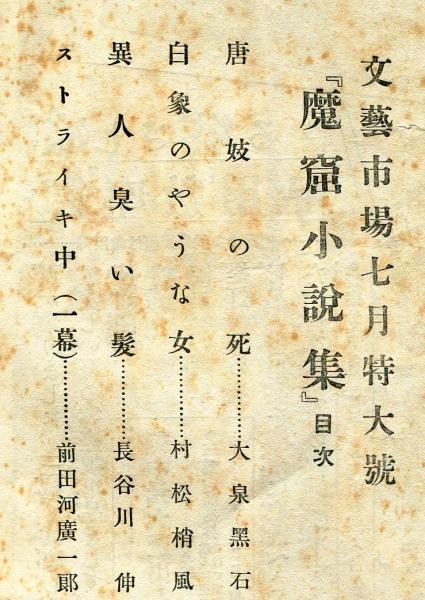 文藝市場七月特大號
『魔窟小說集』目次
唐妓の死…………大泉黑石
白象のやうな女…………村松梢風
異人臭い髮…………長谷川伸
ストライキ中（一幕）…………前田河廣一郎